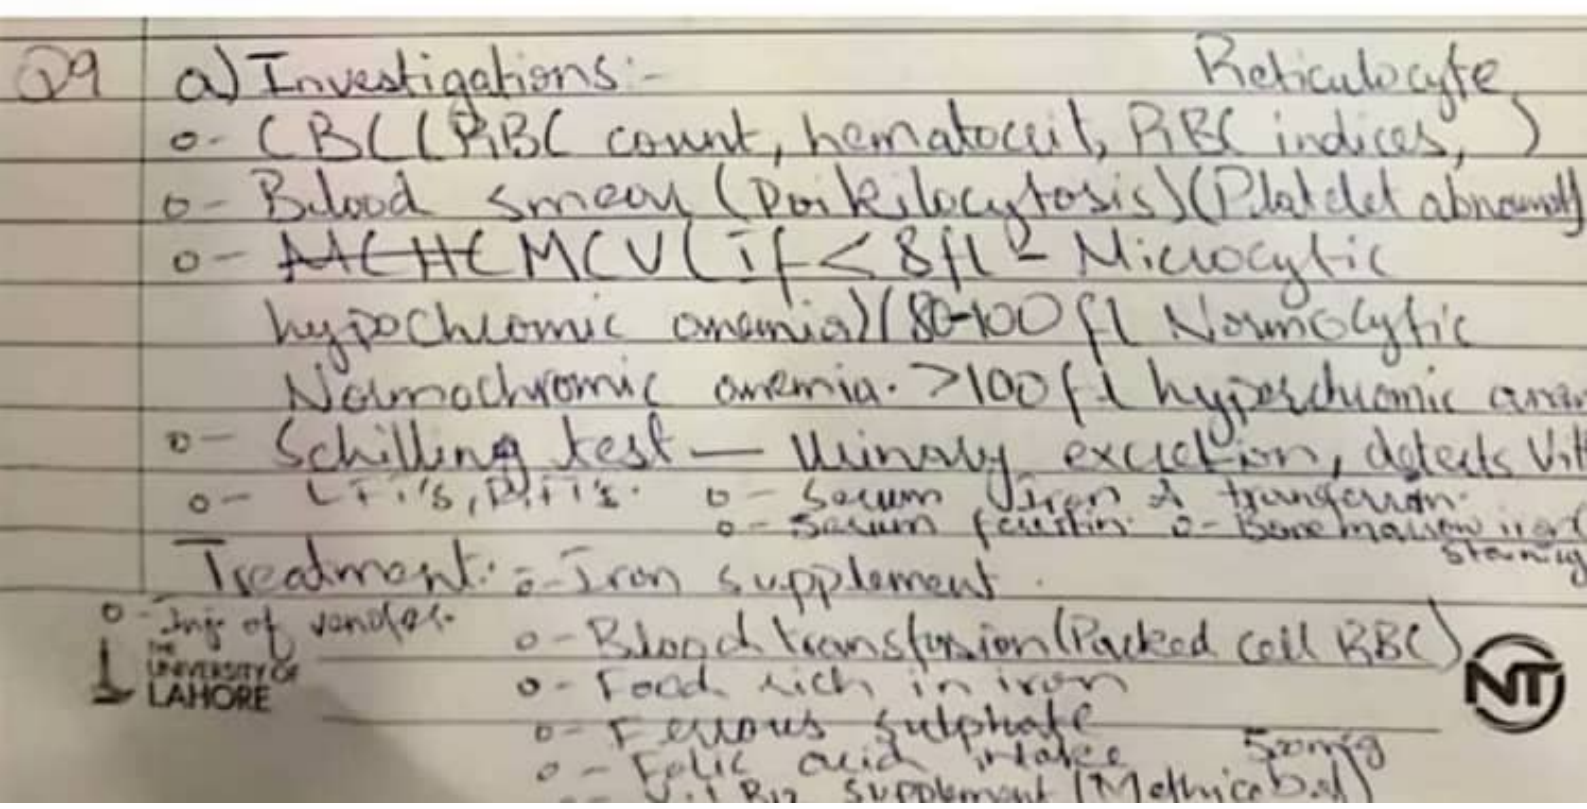 Q9 a) Investigations:-
Reticulocyte
o- CBC (RBC count, hematocrit, RBC indices, )
o- Blood smear (Poikilocytosis) (Platelet
o- MCHC MCV (if < 8fl - Microcytic
hypochromic anemia) (80-100 fl Normocytic
Normochromic anemia. >100 fl hyperchromic
o- Schilling test — Urinary excretion, detects Vit
o- LFT's, RFT's. o- Serum Iron & transferrin.
o- Serum ferritin. o- Bone marrow iron
staining
Treatment: o- Iron supplement.
o- Inj of
o- Blood transfusion (Packed cell RBC)
THE
UNIVERSITY OF
LAHORE
NT
o- Food rich in iron
o- Ferrous sulphate
o- Folic acid intake 500mg
o- Vit B12 supplement